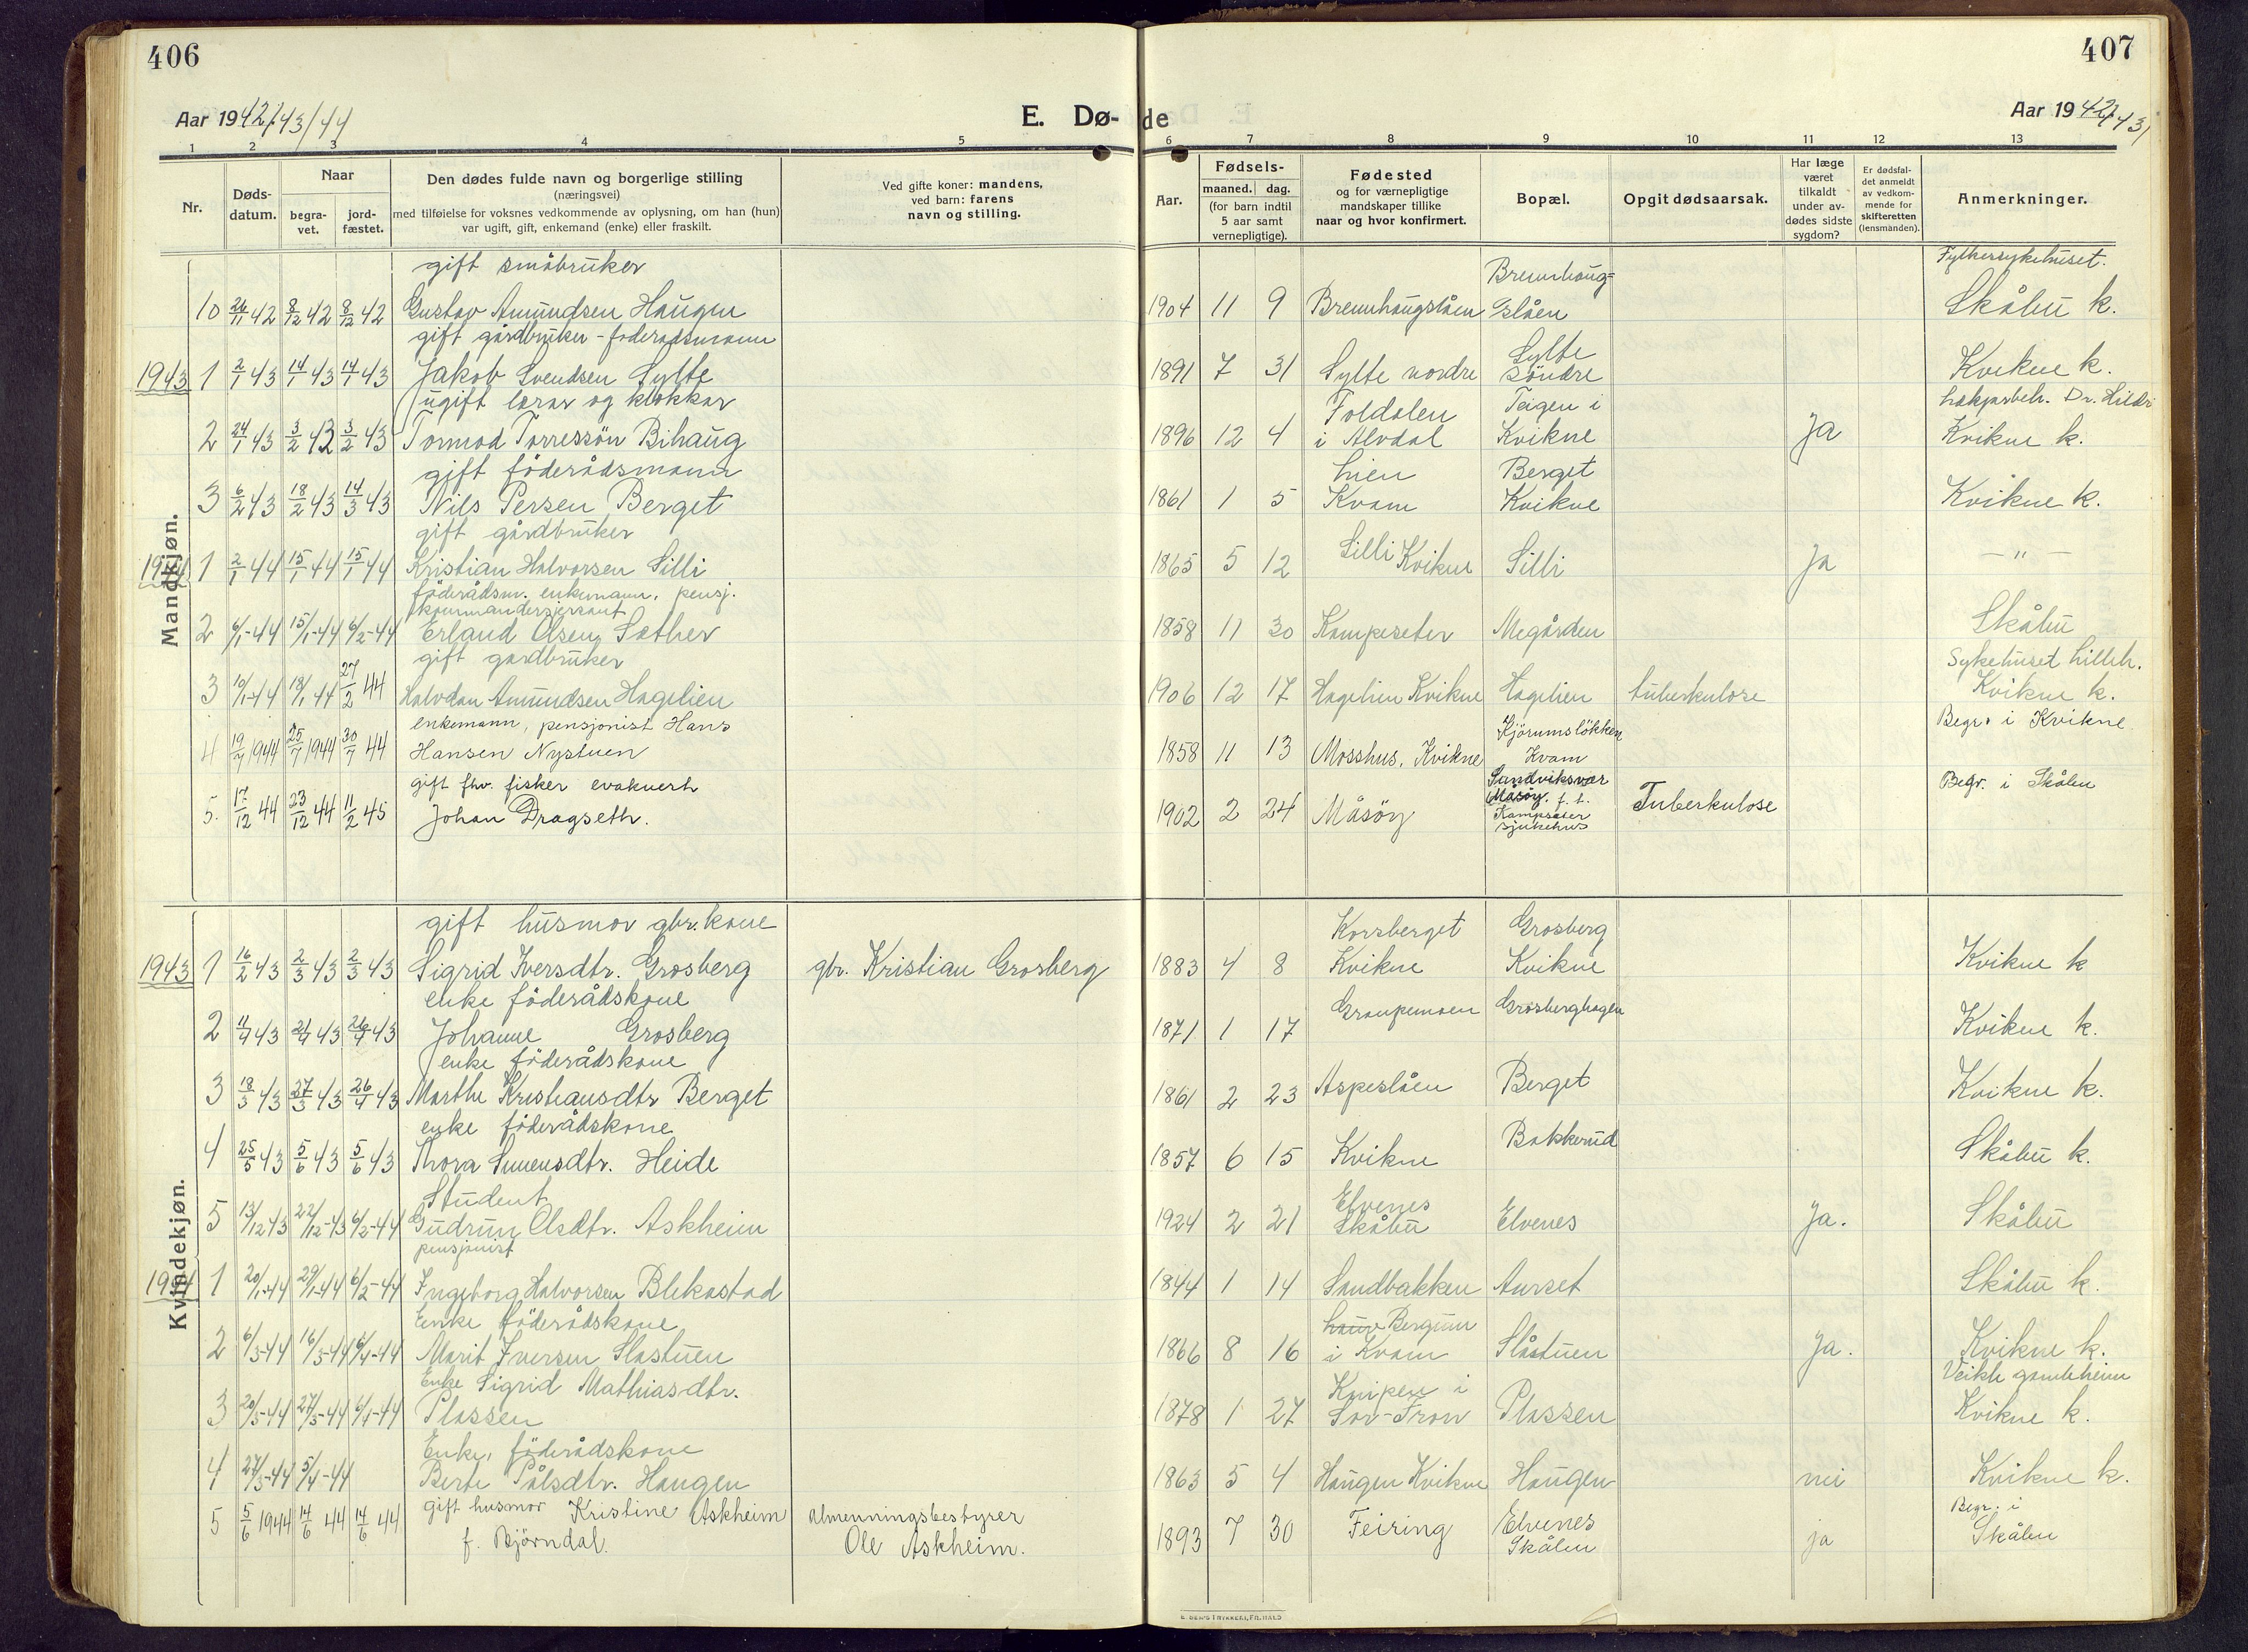 406
407
Aar 1942/43/44
E. Dø-
de
Aar 1942/43/
1 2 3 4 5 6 7 8 9 10 11 12 13
Nr.
Døds-
datum.
Naar
begra-
vet.
jord-
fæstet.
Den dødes fulde navn og borgerlige stilling
(næringsvei)
med tilføielse for voksnes vedkommende av oplysning, om han (hun)
var ugift, gift, enkemand (enke) eller fraskilt.
Ved gifte koner: mandens,
ved barn: farens
navn og stilling.
Aar.
Fødsels-
maaned. dag.
(for barn indtil
5 aar samt
vernepligtige).
Fødested
og for værnepligtige
mandskaper tillike
naar og hvor konfirmert.
Bopæl.
Opgit dødsaarsak.
Har læge
været
tilkaldt
under av-
dødes sidste
sygdom?
Er dødsfal-
det anmeldt
av vedkom-
mende for
skifteretten
(lensmanden).
Anmerkninger.
Mandkjøn.
gift småbruker Brennhaug= Fylkessykehuset.
10 26/11 42 8/12 42 8/12 42 Gustav Amundsen Haugen 1904 11 9 Brennhaugslåen slåen Skåbu k.
gift gårdbruker - föderådsmann Sylte
1943 1 2/1 43 14/1 43 14/1 43 Jakob Svendsen Sylte 1891 7 31 Sylte nordre söndre Kvikne k.
ugift lærar og klokkar Foldalen Teigen i Dr.
2 24/1 43 3/2 43 3/2 43 Tormod Torressön Bihaug 1896 12 4 i Alvdal Kvikne Ja Kvikne k.
gift föderådsmann Lien Berget
3 6/2 43 18/2 43 14/3 43 Nils Persen Berget 1861 1 5 Kvam Kvikne Kvikne k.
gift gårdbruker
1944 1 2/1 44 15/1 44 15/1 44 Kristian Halvorsen Silli 1865 5 12 Silli Kvikne Silli Ja — " —
föderådsm. enkemann, pensj.
kommandersjersant
2 6/1-44 15/1-44 6/2-44 Erland Olsen Sæther 1858 11 30 Kampeseter Megården Skåbu
gift gardbruker Sykehuset Lilleh.
3 10/1-44 18/1 44 27/2 44 Halvdan Amundsen Hagelien 1906 12 17 Hagelien Kvikne Hagelien tuberkulose Kvikne k.
enkemann, pensjonist Hans Kjörumslökken Begr. i Kvikne
4 19/7 1944 25/7 1944 30/7 44 Hansen Nystuen 1858 11 13 Mosshus, Kvikne Kvam
gift fhv. fisker evakuert Sandviksvær Begr. i Skåbu
5. 17/12 44 23/12 44 11/2 45 Johan Dragseth. 1902 2 24 Måsöy Måsöy. f. t. Tuberkulose
Kampseter
sjukehus
Kvindekjøn.
gift husmor gbr. kone Korsberget Grosberg
1943 1 16/2 43 2/3 43 2/3 43 Sigrid Iversdtr. Grosberg gbr. Kristian Grosberg 1883 4 8 Kvikne Kvikne Kvikne k
enke föderådskone Graupemoen Grosberghagen
2 43 43 43 Johanne Grosberg 1871 1 17 Kvikne k.
enke föderådskone
3 18/3 43 27/3 43 26/4 43 Marthe Kristiansdtr Berget 1861 2 23 Aspeslåen Berget Kvikne k.
enke föderådskone Bakkerud
4 25/5 43 5/6 43 5/6 43 Thora Simensdtr. Heide 1857 6 15 Kvikne Skåbu k.
Student Elvenes
5 13/12 43 22/12-43 6/2-44 Gudrun Olsdtr. Askheim 1924 2 21 Skåbu Elvenes Ja. Skåbu
pensjonist
1944 1 20/1-44 29/1-44 6/2-44 Ingeborg Halvorsen Blekastad 1844 1 14 Sandbakken Aurset Skåbu k.
Enke föderådskone Bergum
2 6/3-44 16/3-44 6/4-44 Marit Iversen Slåstuen 1866 8 16 i Kvam Slåstuen Ja. Kvikne k.
Enke Sigrid Mathiasdtr. Knipen i gamleheim
3 20/3-44 27/3-44 44 Plassen 1878 1 27 Sør-Fron Plassen Kvikne k.
Enke, föderådskone
4 27/3-44 5/4-44 Berte Pålsdtr. Haugen 1863 5 4 Haugen Kvikne Haugen nei Kvikne k.
gift husmor Kristine Askheim almenningsbestyrer Elvenes Begr. i
5 5/6 1944 14/6 44 14/6 44 f. Björndal. Ole Askheim. 1893 7 30 Feiring Skåbu ja Skåbu